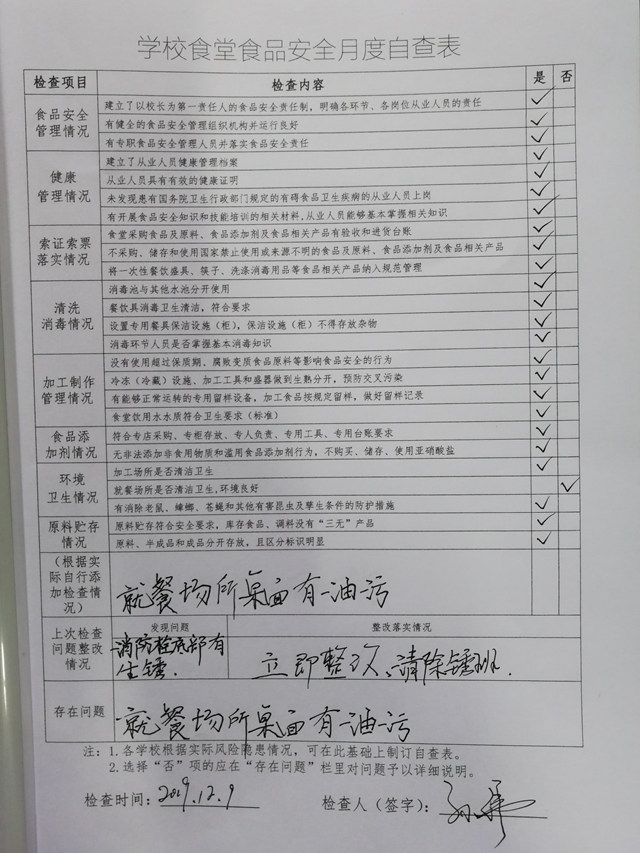 学校食堂食品安全月度自查表
检查项目 检查内容 是 否
食品安全管理情况
建立了以校长为第一责任人的食品安全责任制，明确各环节、各岗位从业人员的责任 ✓
有健全的食品安全管理组织机构并运行良好 ✓
有专职食品安全管理人员并落实食品安全责任 ✓
健康管理情况
建立了从业人员健康管理档案 ✓
从业人员具有有效的健康证明 ✓
未发现患有国务院卫生行政部门规定的有碍食品卫生疾病的从业人员上岗 ✓
有开展食品安全知识和技能培训的相关材料,从业人员能够基本掌握相关知识 ✓
索证索票落实情况
食堂采购食品及原料、食品添加剂及食品相关产品有验收和进货台账 ✓
不采购、储存和使用国家禁止使用或来源不明的食品及原料、食品添加剂及食品相关产品 ✓
将一次性餐饮盛具、筷子、洗涤消毒用品等食品相关产品纳入规范管理 ✓
清洗消毒情况
消毒池与其他水池分开使用 ✓
餐饮具消毒卫生清洁，符合要求 ✓
设置专用餐具保洁设施（柜），保洁设施（柜）不得存放杂物 ✓
消毒环节人员是否掌握基本消毒知识 ✓
加工制作管理情况
没有使用超过保质期、腐败变质食品原料等影响食品安全的行为 ✓
冷冻（冷藏）设施、加工工具和盛器做到生熟分开，预防交叉污染 ✓
有能够正常运转的专用留样设备，加工食品按规定留样，做好留样记录 ✓
食堂饮用水水质符合卫生要求（标准） ✓
食品添加剂情况
符合专店采购、专柜存放、专人负责、专用工具、专用台账要求 ✓
无非法添加非食用物质和滥用食品添加剂行为，不购买、储存、使用亚硝酸盐 ✓
环境卫生情况
加工场所是否清洁卫生 ✓
就餐场所是否清洁卫生,环境良好 ✓
有消除老鼠、蟑螂、苍蝇和其他有害昆虫及孳生条件的防护措施 ✓
原料贮存情况
原料贮存符合安全要求，库存食品、调料没有“三无”产品 ✓
原料、半成品和成品分开存放，且区分标识明显 ✓
（根据实际自行添加检查情况）
就餐场所桌面有油污
上次检查问题整改情况
发现问题 整改落实情况
消防栓底部有生锈.
立即整改、清除锈斑.
存在问题
就餐场所桌面有油污
注：1.各学校根据实际风险隐患情况，可在此基础上制订自查表。
2.选择“否”项的应在“存在问题”栏里对问题予以详细说明。
检查时间：2019.12.9 检查人（签字）：